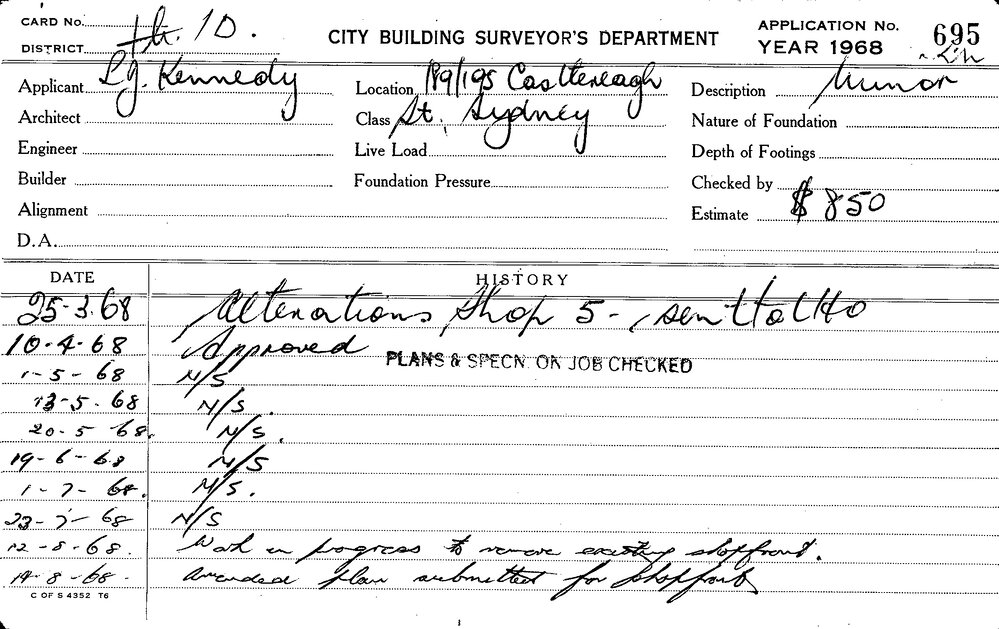 CARD No.
DISTRICT 10.
CITY BUILDING SURVEYOR'S DEPARTMENT
APPLICATION No. 695
YEAR 1968
Applicant L.J. Kennedy
Location 189/195 Castlereagh
Description Minor
Architect
Class St. Sydney
Nature of Foundation
Engineer
Live Load
Depth of Footings
Builder
Foundation Pressure
Checked by
Alignment
Estimate $850
D.A.
DATE HISTORY
25-3-68 Alterations Shop 5 - sent to
10-4-68 Approved PLANS & SPECN. ON JOB CHECKED
1-5-68 N/S
13-5-68 N/S.
20-5 68. N/S.
19-6-68 N/S
1-7-68. N/S.
23-7-68 N/S
12-8-68. Work in progress to remove existing shopfront.
19-8-68. Amended plan submitted for shopfront
C OF S 4352 T6